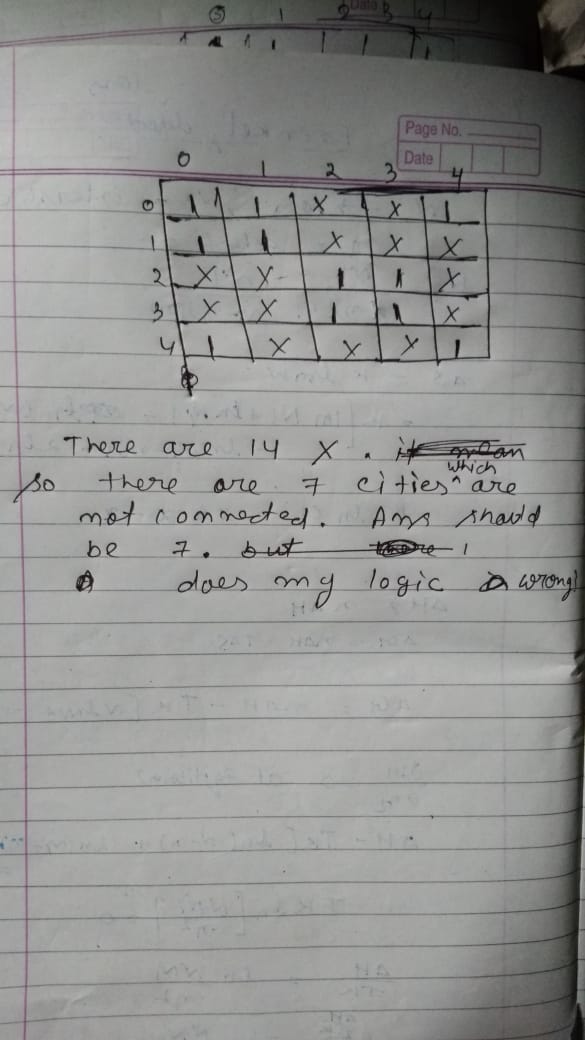 3 1 2 3 4
Data
Page No.
Date
0 1 2 3 4
0 1 1 X X 1
1 1 1 X X X
2 X X 1 1 X
3 X X 1 1 X
4 1 X X X 1
There are 14 X. it mean
so there are 7 cities which are
not connected. Ans should
be 7. but there 1
does my logic wrong!